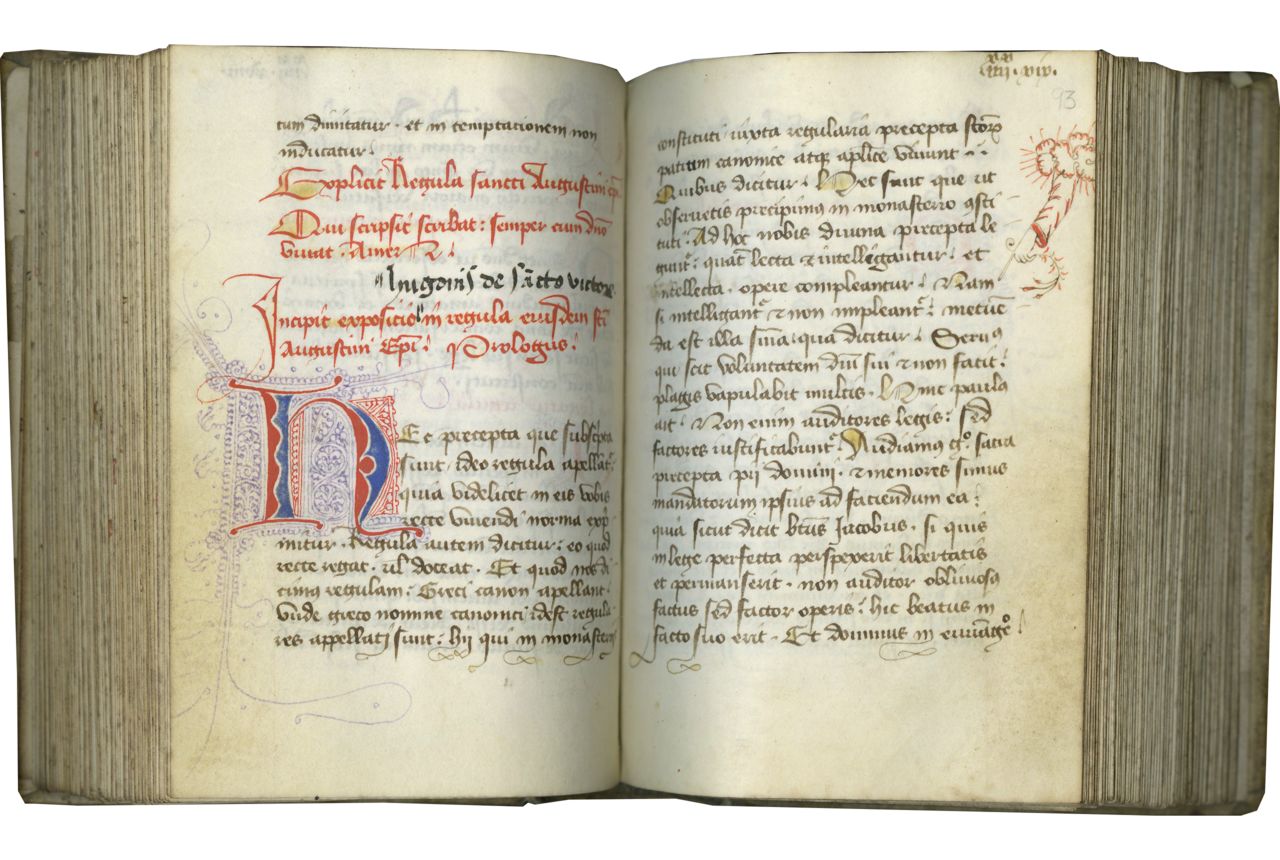 tum dimittatur · et in temptacionem non
inducatur ·
Explicit Regula sancti Augustini ep̄i
Qui scripsit scribat : semper cum dn̄o
viuat · Amen
Hugonis de sc̄to victore
Incipit expositio in regula eiusdem sc̄i
Augustini Ep̄i · Prologus ·
HEc precepta que subscripta
sunt · ideo regula apellat̄ ·
quia videlicet in eis vobis
recte viuendi norma exp̄
mitur · Regula autem dicitur : eo quod
recte regat · ul̄ doceat · Et quod nos di
cimus regulam · Greci canon apellant ·
vnde greco nomine canonici · idest regula
res appellati sunt : hii qui in monasteriis
93
constituti iuxta regularia precepta sc̄orꝝ
patrum canonice atqꝫ apl̄ice viuunt ·
Quibus dicitur · Hec sunt que ut
obseruetis precipimus in monasterio 9sti
tuti · Ad hoc nobis diuina precepta le
gunt̄ · quat̄ lecta ⁊ intelligantur · et
intellecta · opere compleantur · Nam
si intelligant̄ ⁊ non impleant̄ · metuē
da est illa sn̄ia · qua dicitur · Seruꝰ
qui scit voluntatem dn̄i sui ⁊ non facit ·
plagis vapulabit multis · Hinc paulꝰ
ait · Non enim auditores legis : sed
factores iustificabunt̄ · Audiamus gͦ · sacra
precepta pii domini · ⁊ memores simus
mandatorum ipsius ad faciendum ea :
quia sicut dicit bt̄us Jacobus · si quis
in lege perfecta perspexerit libertatis
et permanserit · non auditor obliuiosꝰ
factus sed factor operis : hic beatus in
facto suo erit · Et dominus in euuāgeͦ